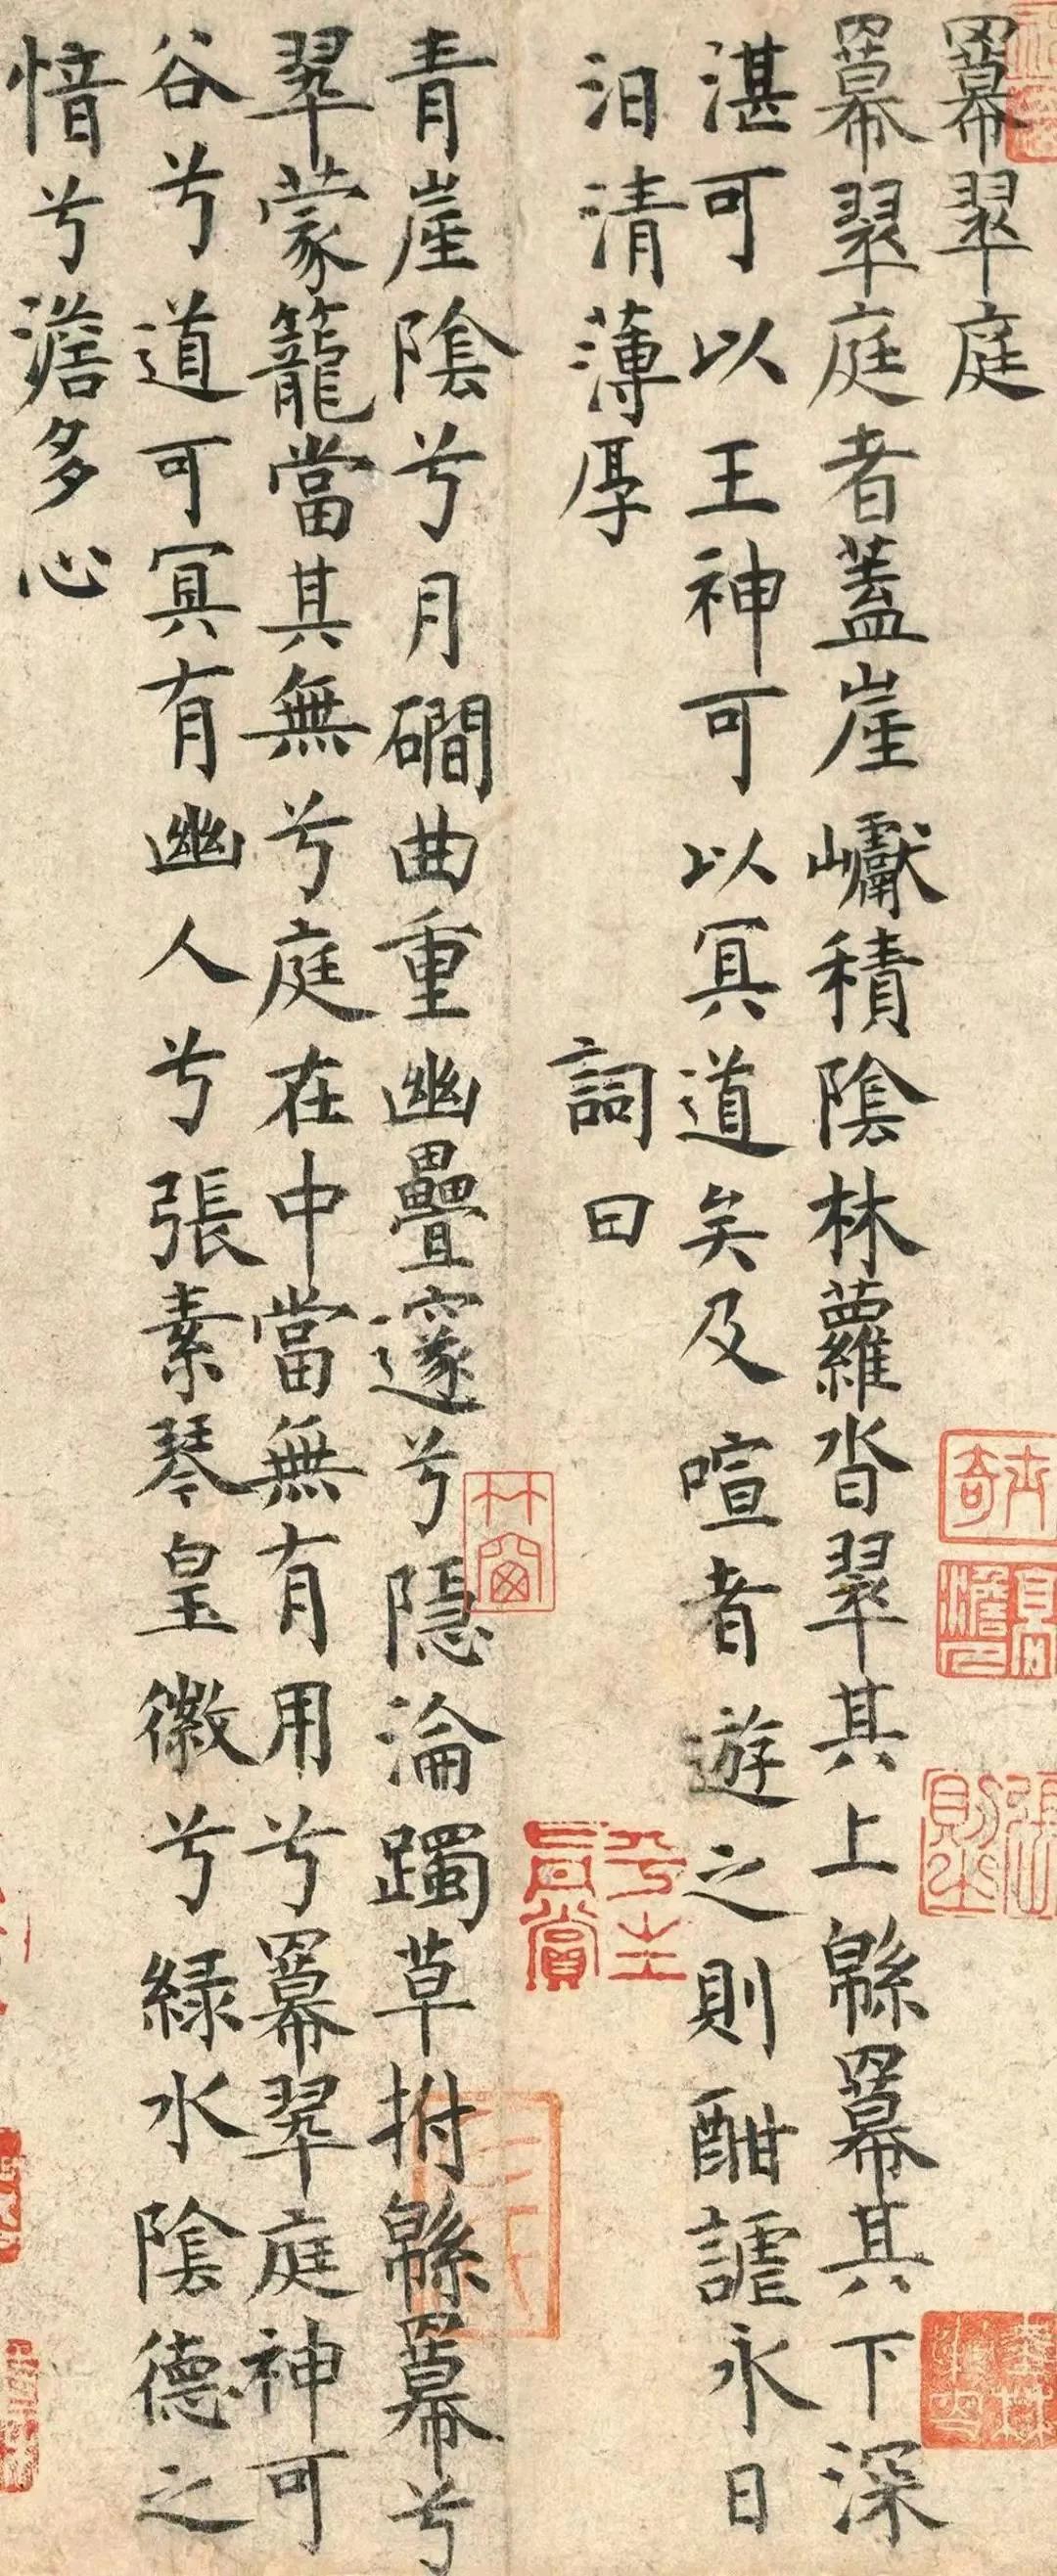 羃翠庭
羃翠庭者蓋崖巘積陰林蘿沓翠其上緜羃其下深
湛可以王神可以冥道矣及喧者遊之則酣謔永日
汩清薄厚 詞曰
青崖陰兮月磵曲重幽疊邃兮隱淪躅草拊緜羃兮
翠蒙籠當其無兮庭在中當無有用兮羃翠庭神可
谷兮道可冥有幽人兮張素琴皇徽兮綠水陰德之
愔兮澹多心